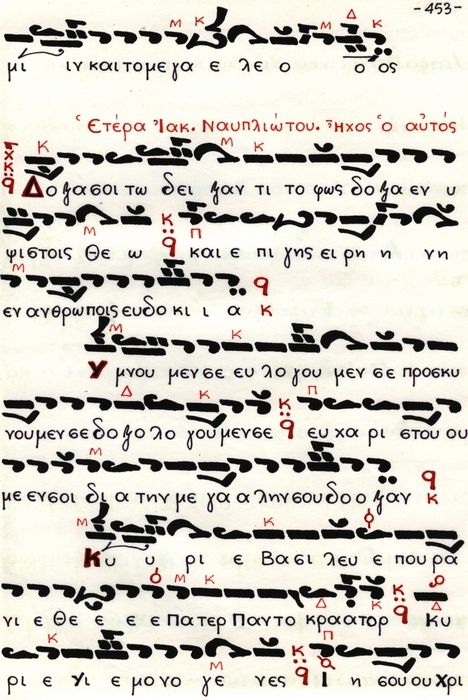 -453-
μι ιν και το μεγα ε λε ο ο ος
Ετέρα Ἰακ. Ναυπλιώτου. Ἦχος ὁ αὐτός
Δοξα σοι τω δει ξαν τι το φως δο ξα εν υ
ψιστοις Θε ω και ε πι γης ει ρη η νη
εν ανθρωποις ευ δο κι ι α
Υ μνου μεν σε ευ λο γου μεν σε προσκυ
νου μεν σε δο ξο λο γου μεν σε ευ χα ρι στου ου
με εν σοι δι α την με γα α λην σου δο ο ξαν
Κυ υ ρι ε Βα σι λευ ε που ρα
νι ε Θε ε ε Πα τερ Παντο κρα α τορ Κυ
ρι ε Υι ε μο νο γε νες Ι η σου ου χρι